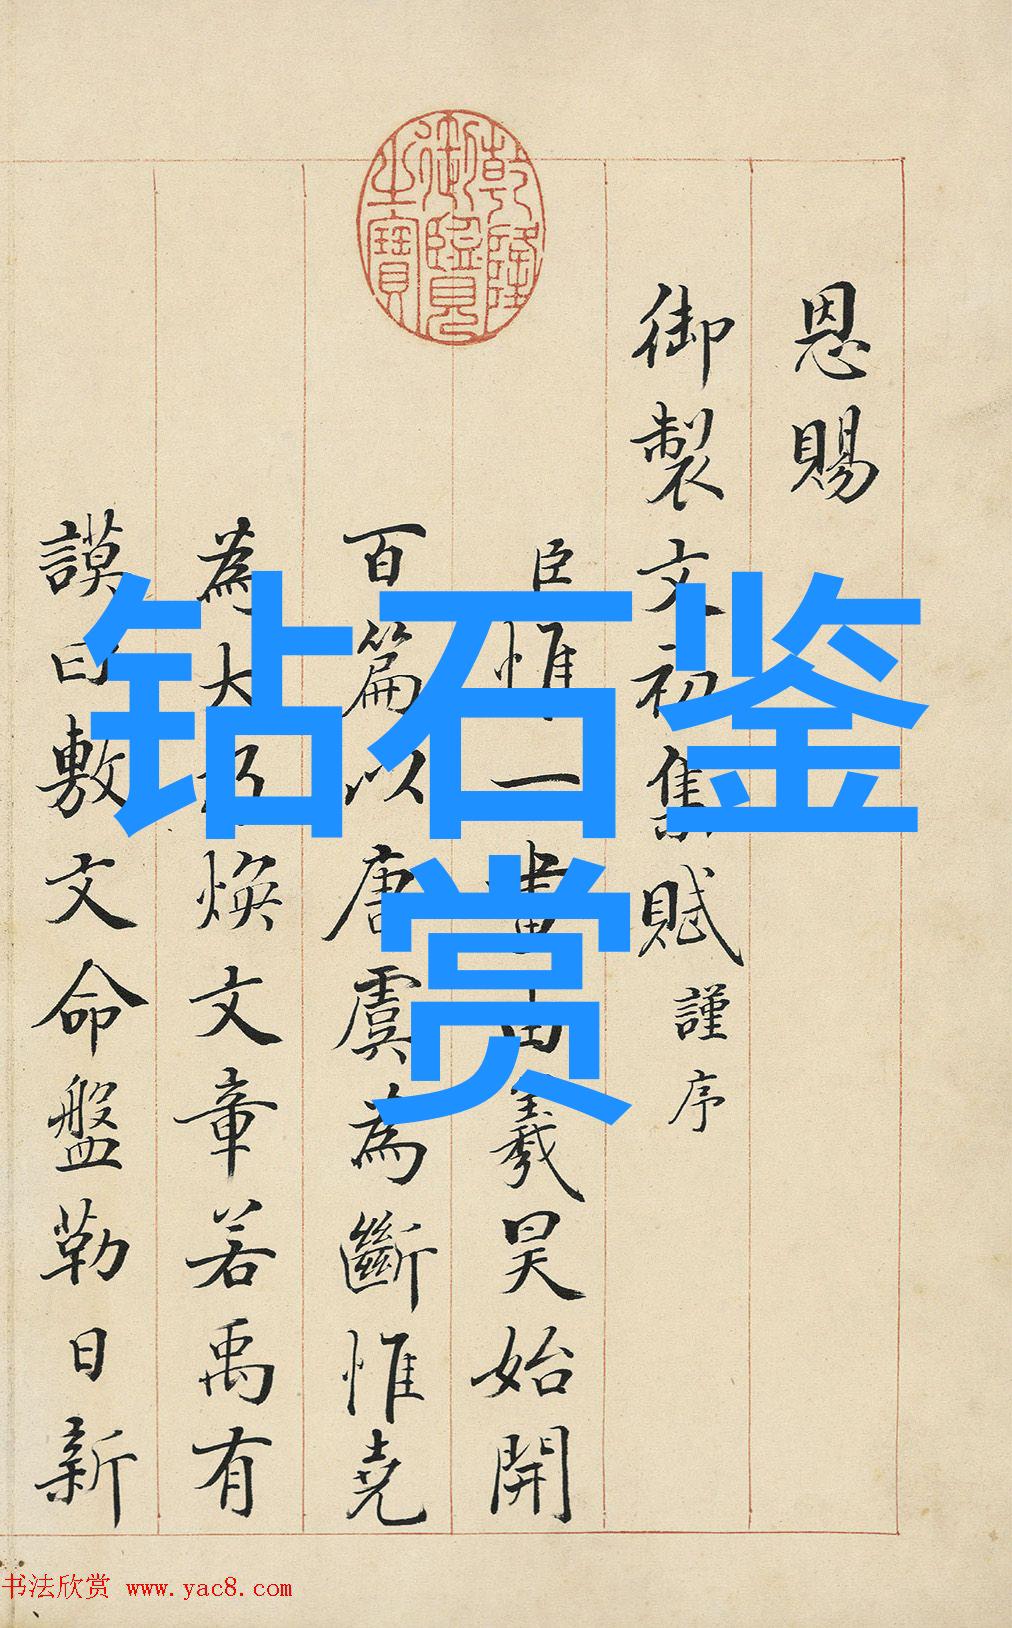 乾隆御覽之寶
恩賜
御製文初集賦謹序
臣惟一畫由羲昊始開
百篇以唐虞為斷惟堯
為大乃煥文章若禹有
謨曰敷文命盤勒日新
钻石鉴
赏
书法欣赏 www.yac8.com